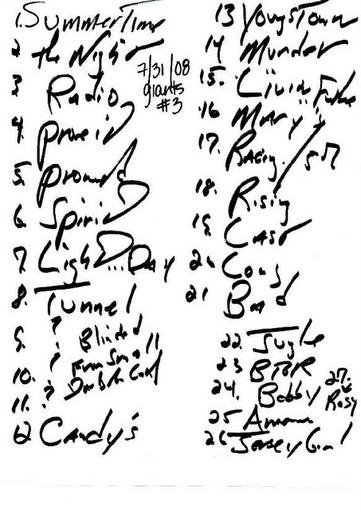 1. SummerTime
2. the Night
3 Radio
7/31/08
giants
#3
4. prove it
5. promised
6. Spirit
7. Light...Day
8. Tunnel
9. ? Blinded
10. ? From Small
11. ? Drive All
12 Candy's
13 Youngstown
14 Murder
15. Livin Future
16 Mary's
17. Racing
5
18. Rising
19. Cast
20 Long
21 Bad
22. Jungle
23 BTR
24. Bobby
27. Rosy
25 American
26 Jersey Girl